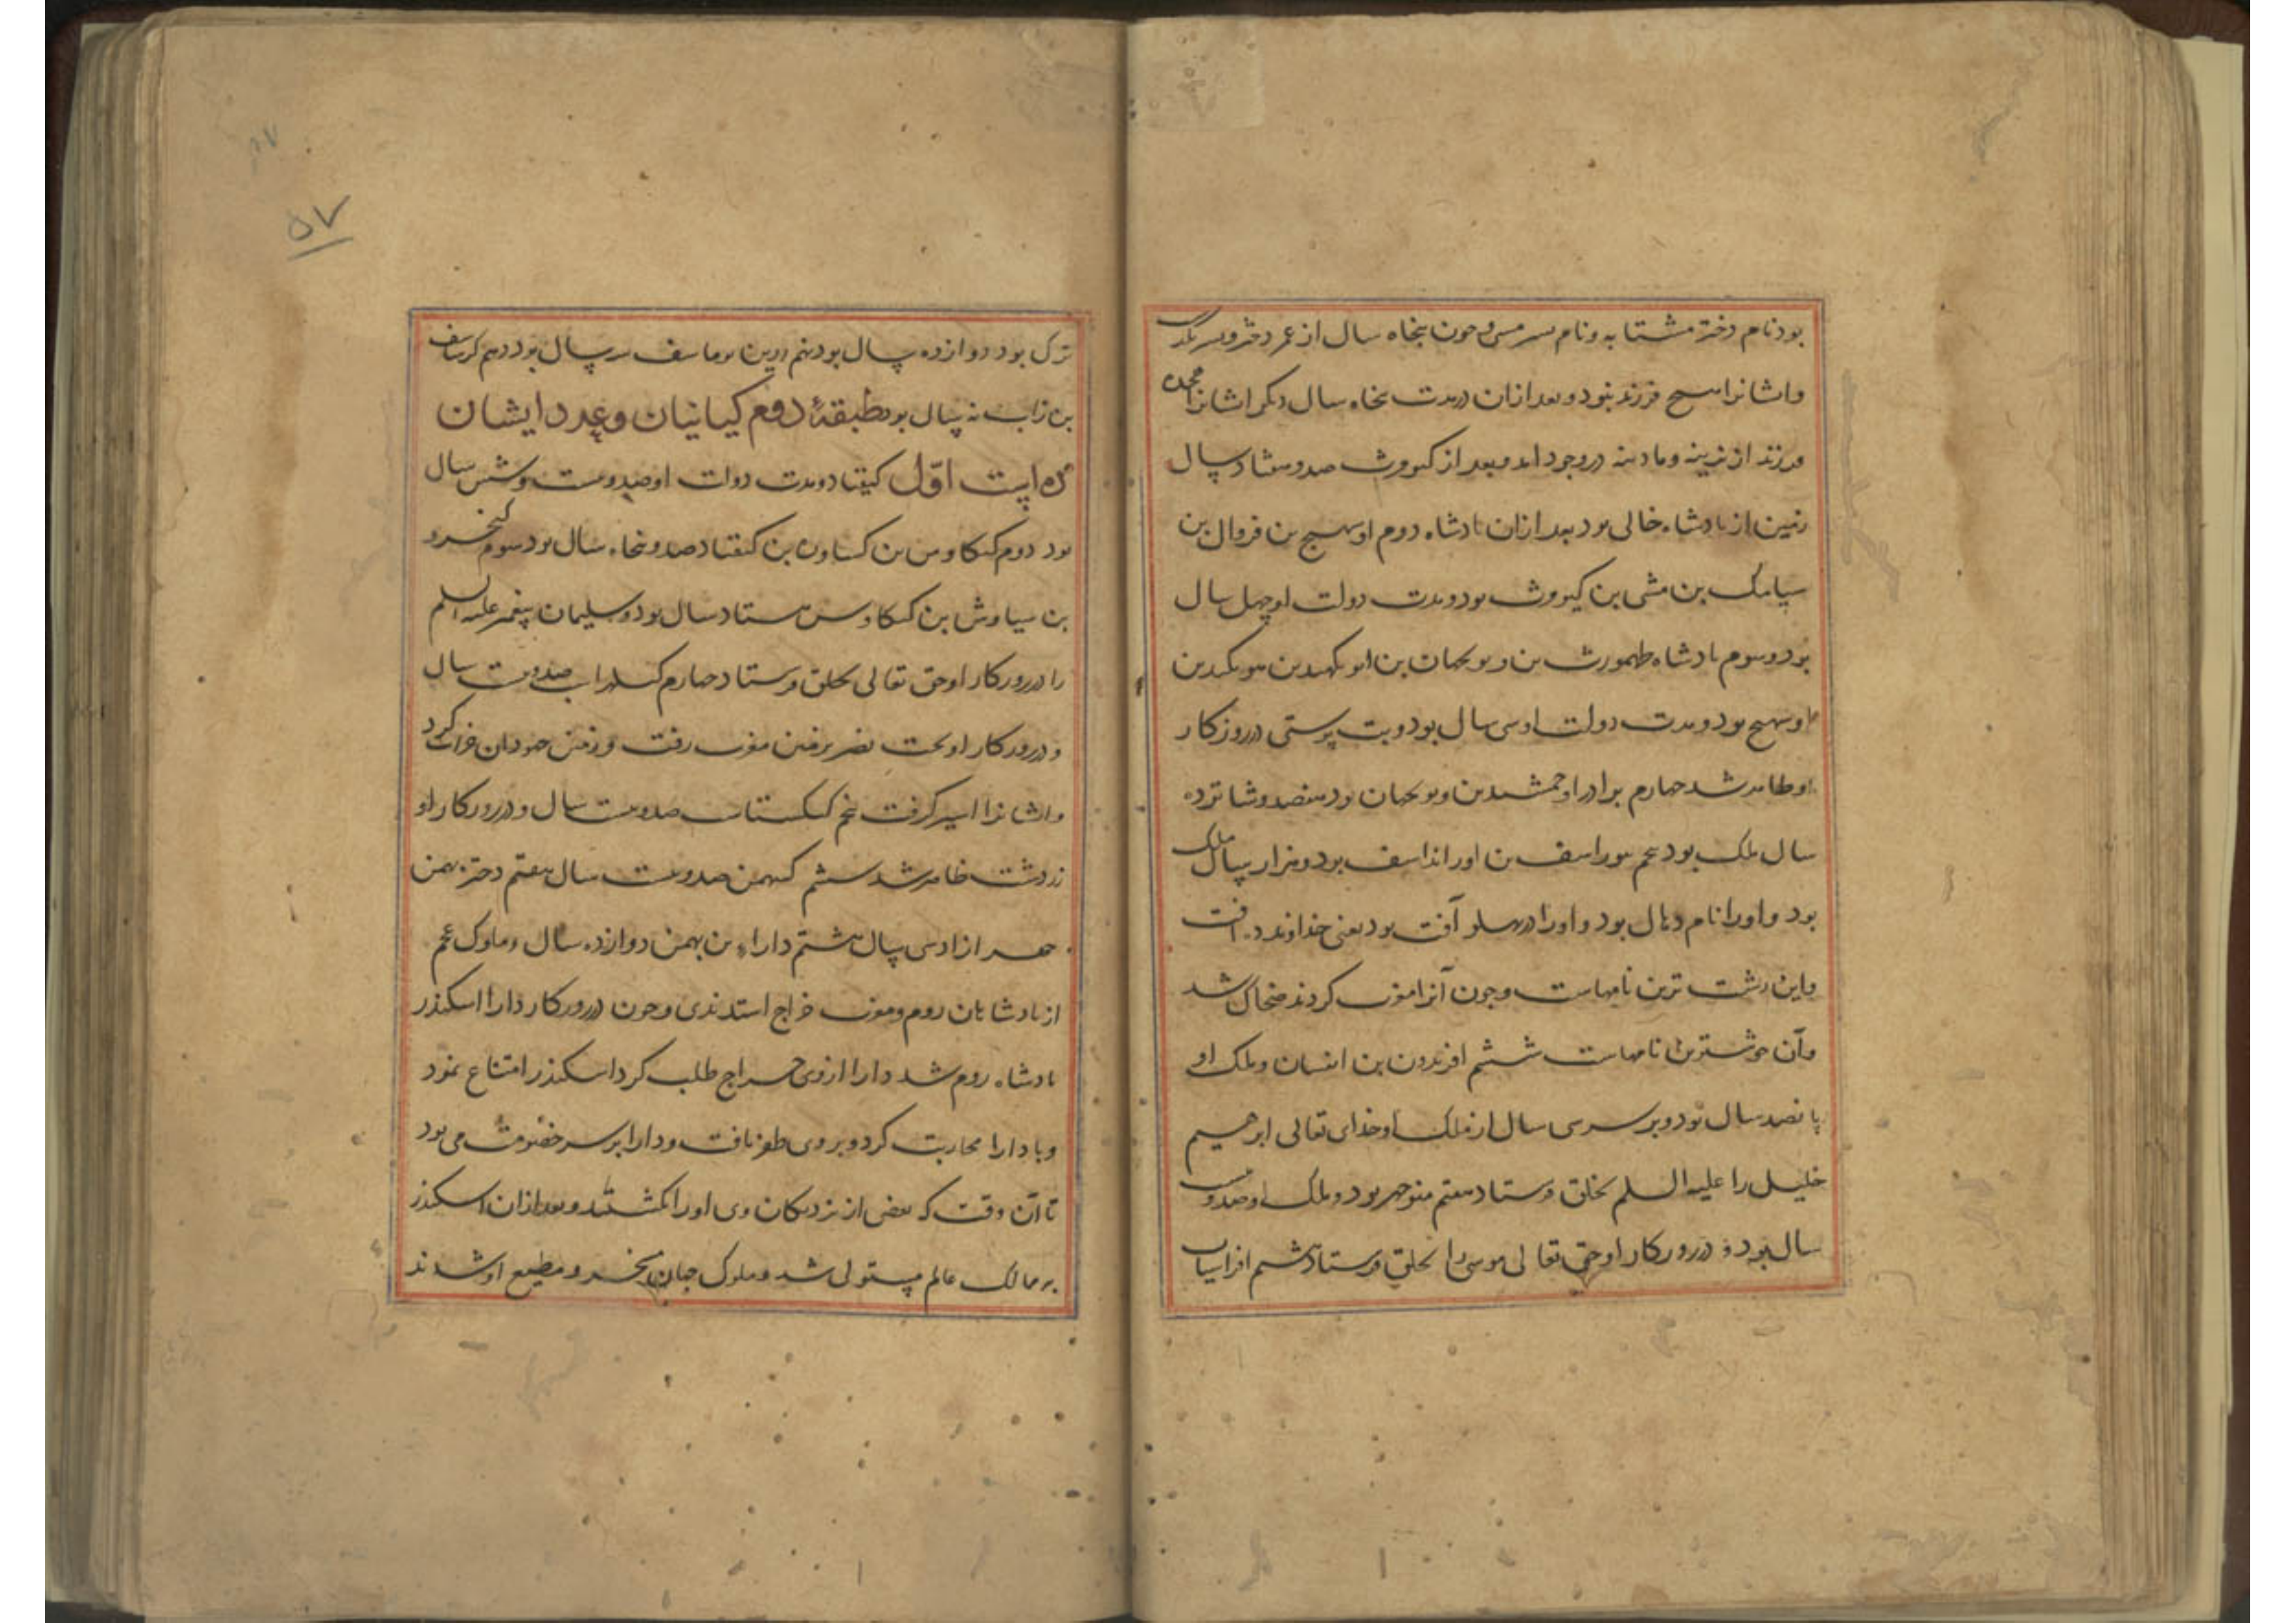 بود نام دختر مشتابه و نام پسر مشی و چون پنجاه سال از عمر دختر و پسر بگذ
و ایشانرا هیچ فرزند نبود و بعد از آن در مدت پنجاه سال دیگر ایشانرا هجده
فرزند از نرینه و مادینه در وجود آمد و بعد از کیومرث صد و هفتاد سال
زمین از پادشاه خالی بود بعد از آن پادشاه دوم اوسهنج بن فروال بن
سیامک بن مشی بن کیومرث بود و مدت دولت او چهل سال
بود و سوم پادشاه طهمورث بن ویونجهان بن
اوسهنج بود و مدت دولت او سی سال بود و بت پرستی در روزکار
او ظاهر شد چهارم برادر او جمشید بن ویونجهان بود هفصد و شانزده
سال ملک بود پنجم بیوراسف بن اورانداسف بود و هزار سال ملک
بود و او را نام دهاک بود و او را در پهلو آفت بود یعنی خداوند ده آفت
و این زشت ترین نامهاست و چون آنرا معرب کردند ضحاک شد
و آن خوشترین نامهاست ششم افریدون بن اثفیان و ملک او
پانصد سال بود و بر سر سی سال از ملک او خدای تعالی ابرهیم
خلیل را علیه السلم بخلق فرستاد هفتم منوچهر بود و ملک او صد و بیست
سال بود و در روزکار او حق تعالی موسی را بخلق فرستاد هشتم افراسیاب
ترک بود دوازده سال بود نهم زاب بن بوماسف سه سال بود دهم کرساسف
بن زاب نه سال بود طبقۀ دوم کیانیان و عدد ایشان
ده است اوّل کیقباد و مدت دولت او صد و بیست و شش سال
بود دوم کیکاوس بن کیقباد صد و پنجاه سال بود سوم کیخسرو
بن سیاوش بن کیکاوس هشتاد سال بود و سلیمان پیغمبر علیه السلم
را در روزکار او حق تعالی بخلق فرستاد چهارم کیلهراسب صد و بیست سال
و در روزکار او بخت نصر بزمین مغرب رفت و زمین جهودان خراب کرد
و ایشانرا اسیر کرفت پنجم کیکستاسب صد و بیست سال و در روزکار او
زردشت ظاهر شد ششم کیبهمن صد و بیست سال هفتم دختر بهمن
چهرازاد سی سال هشتم داراء بن بهمن دوازده سال و ملوک عجم
از پادشاهان روم و مغرب خراج استدندی و چون در روزکار دارا اسکندر
پادشاه روم شد دارا از وی خراج طلب کرد اسکندر امتناع نمود
و با دارا محاربت کرد و بر وی ظفر یافت و دارا بر سر خصومت می بود
تا آن وقت که بعضی از نزدیکان وی او را بکشتند و بعد از آن اسکندر
بر ممالک عالم مستولی شد و ملوک جهان مسخر و مطیع او شدند
۵۷